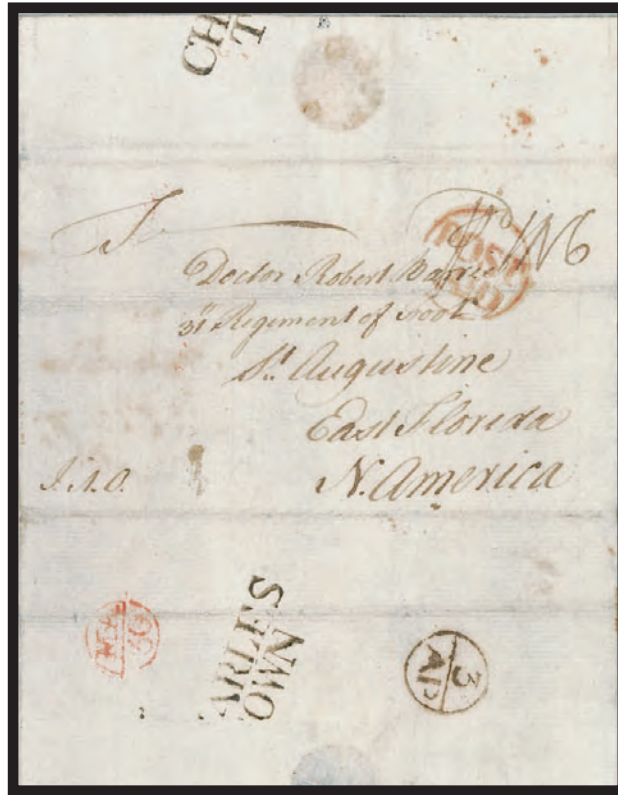 CH
T
To
POST
PD
Doctor Robert
31st Regiment of Foot
St. Augustine
East Florida
N. America
ARLES
OWN
3
AP